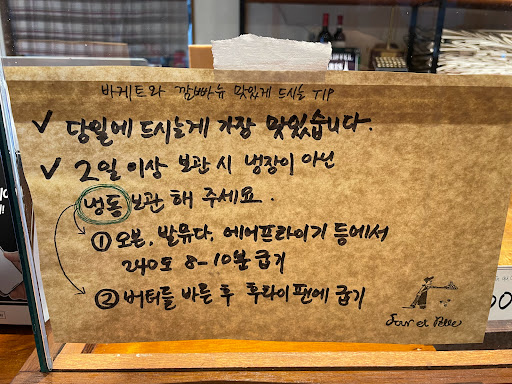 바게트와 깜빠뉴 맛있게 드시는 TIP
✓ 당일에 드시는게 가장 맛있습니다.
✓ 2일 이상 보관 시 냉장이 아닌
냉동보관 해 주세요.
① 오븐, 발뮤다, 에어프라이기 등에서
240도 8-10분 굽기
② 버터를 바른 후 후라이팬에 굽기